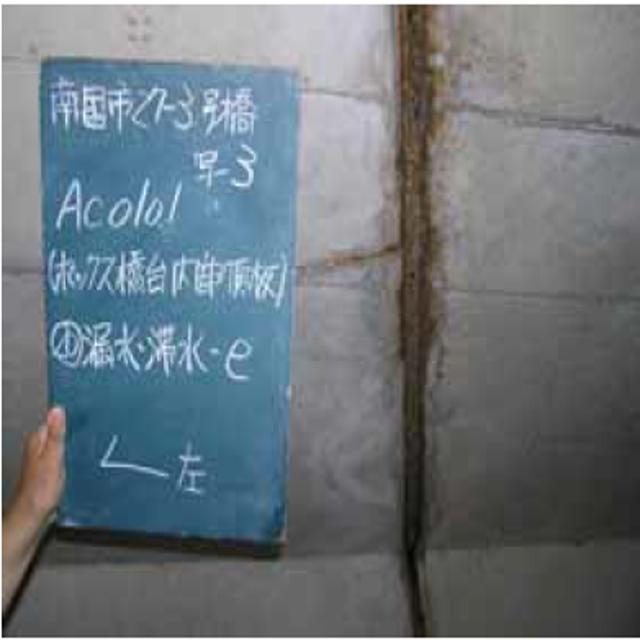 南国市C7-3号橋
号-3
Ac0101
(ボックス橋台内部頂版)
漏水・滞水-e
左